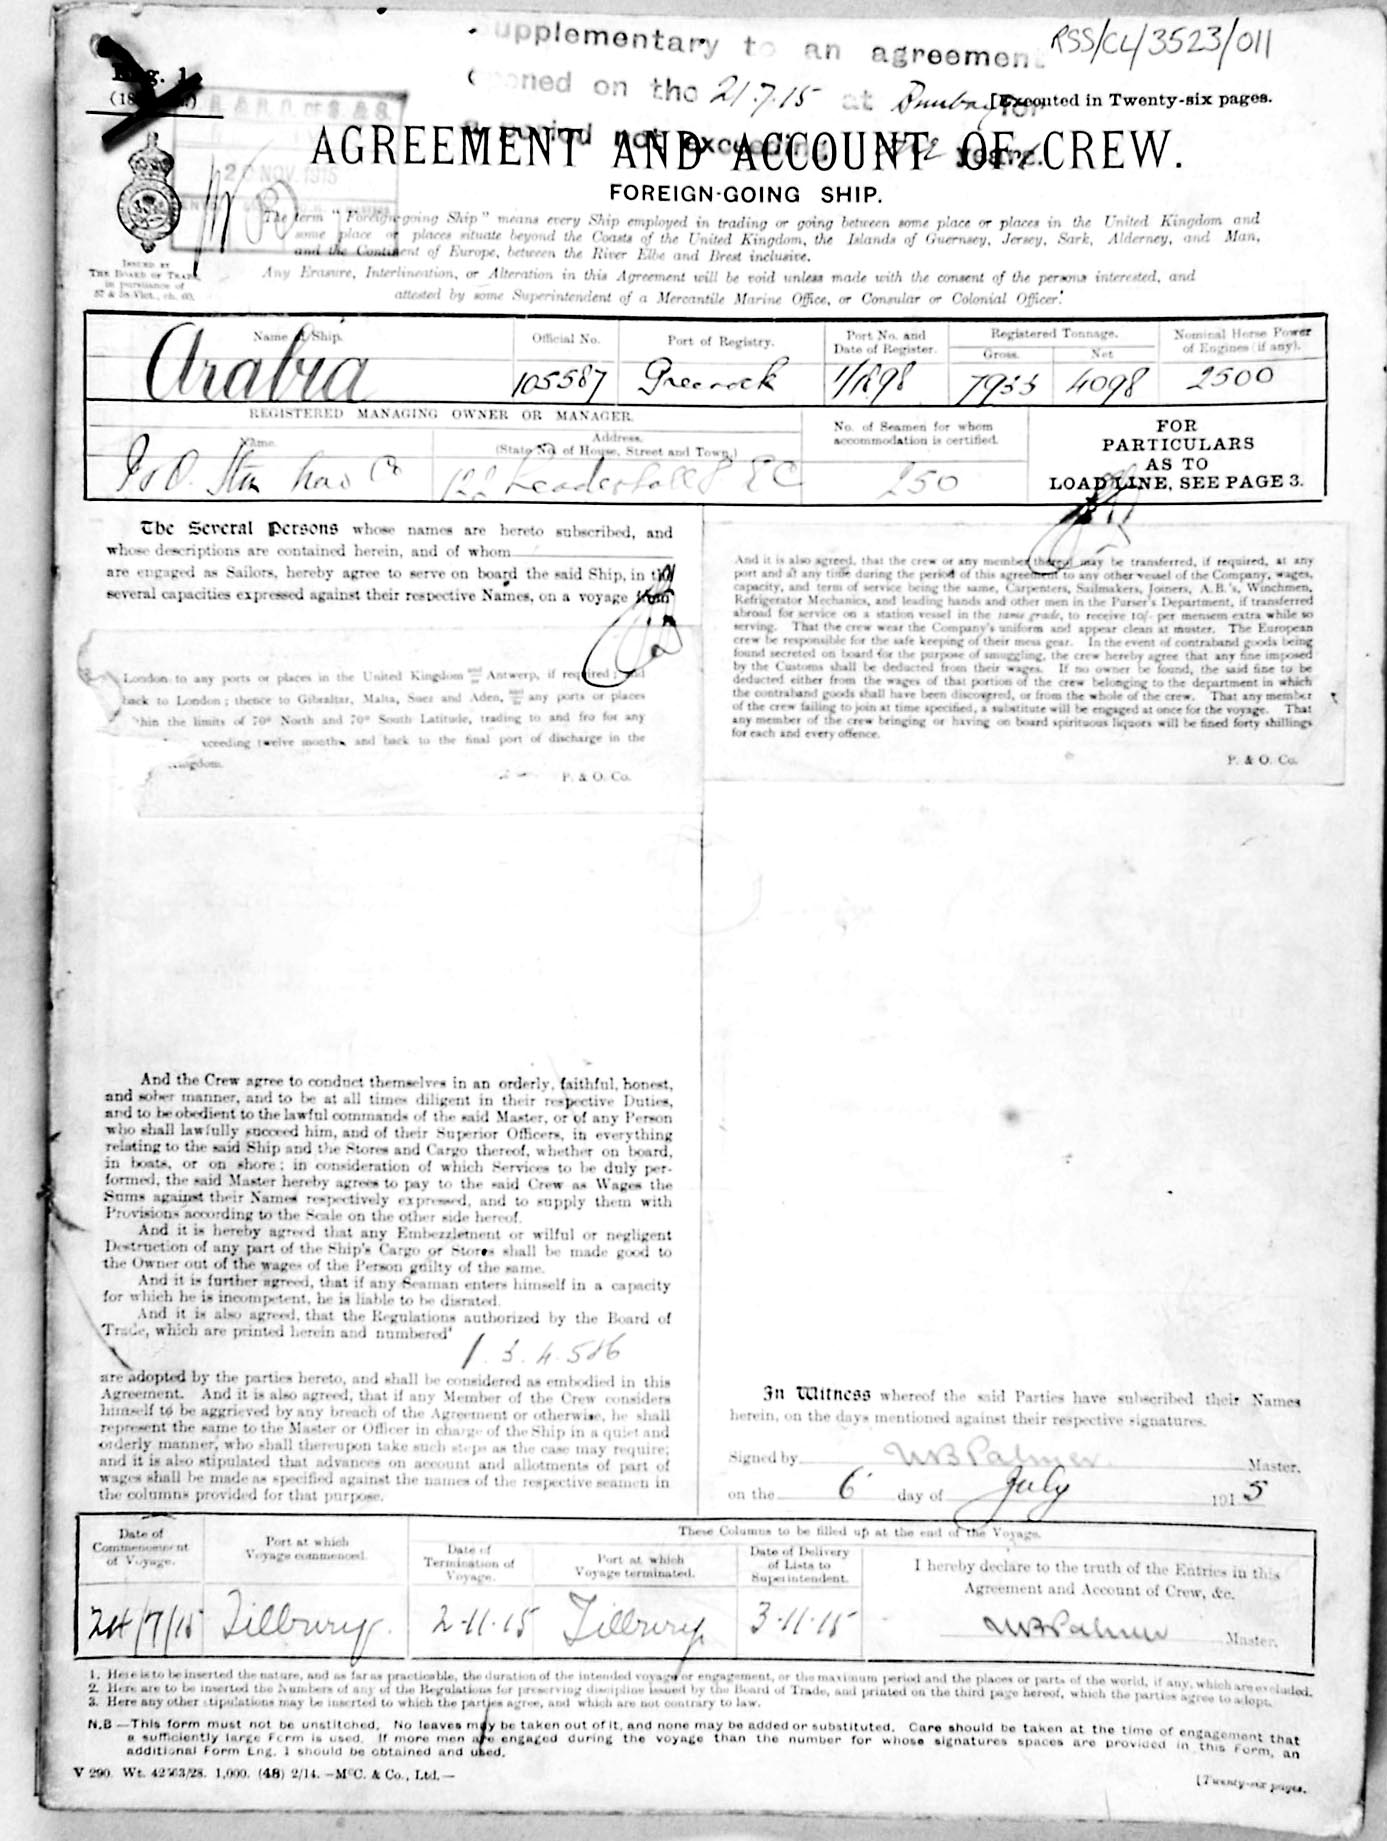 Supplementary to an agreement
RSS/CL/3523/011
opened on the 21.7.15 at Bombay for
[Executed in Twenty-six pages.
a period not exceeding years.
Eng. 1
AGREEMENT AND ACCOUNT OF CREW.
FOREIGN-GOING SHIP.
20 NOV 1915
The term "Foreign-going Ship" means every Ship employed in trading or going between some place or places in the United Kingdom and
some place or places situate beyond the Coasts of the United Kingdom, the Islands of Guernsey, Jersey, Sark, Alderney, and Man,
and the Continent of Europe, between the River Elbe and Brest inclusive.
ISSUED BY
THE BOARD OF TRADE,
in pursuance of
57 & 58 Vict., ch. 60.
Any Erasure, Interlineation, or Alteration in this Agreement will be void unless made with the consent of the persons interested, and
attested by some Superintendent of a Mercantile Marine Office, or Consular or Colonial Officer.
Name of Ship.
Official No.
Port of Registry.
Port No. and
Date of Register.
Registered Tonnage.
Gross.
Net
Nominal Horse Power
of Engines (if any).
Arabia
105587
Greenock
1/1898
7933
4098
2500
REGISTERED MANAGING OWNER OR MANAGER.
Name.
Address.
(State No. of House, Street and Town.)
No. of Seamen for whom
accommodation is certified.
FOR
PARTICULARS
AS TO
LOAD LINE, SEE PAGE 3.
P & O. Stm Nav Co
122 Leadenhall St EC
250
The Several Persons whose names are hereto subscribed, and
whose descriptions are contained herein, and of whom
are engaged as Sailors, hereby agree to serve on board the said Ship, in the
several capacities expressed against their respective Names, on a voyage from
London to any ports or places in the United Kingdom and/or Antwerp, if required; and
back to London; thence to Gibraltar, Malta, Suez and Aden, and/or any ports or places
within the limits of 70° North and 70° South Latitude, trading to and fro for any
exceeding twelve months, and back to the final port of discharge in the
Kingdom.
P. & O. Co.
And it is also agreed, that the crew or any member thereof may be transferred, if required, at any
port and at any time during the period of this agreement to any other vessel of the Company, wages,
capacity, and term of service being the same, Carpenters, Sailmakers, Joiners, A.B.'s, Winchmen,
Refrigerator Mechanics, and leading hands and other men in the Purser's Department, if transferred
abroad for service on a station vessel in the same grade, to receive 10/- per mensem extra while so
serving. That the crew wear the Company's uniform and appear clean at muster. The European
crew be responsible for the safe keeping of their mess gear. In the event of contraband goods being
found secreted on board for the purpose of smuggling, the crew hereby agree that any fine imposed
by the Customs shall be deducted from their wages. If no owner be found, the said fine to be
deducted either from the wages of that portion of the crew belonging to the department in which
the contraband goods shall have been discovered, or from the whole of the crew. That any member
of the crew failing to join at time specified, a substitute will be engaged at once for the voyage. That
any member of the crew bringing or having on board spirituous liquors will be fined forty shillings
for each and every offence.
P. & O. Co.
And the Crew agree to conduct themselves in an orderly, faithful, honest,
and sober manner, and to be at all times diligent in their respective Duties,
and to be obedient to the lawful commands of the said Master, or of any Person
who shall lawfully succeed him, and of their Superior Officers, in everything
relating to the said Ship and the Stores and Cargo thereof, whether on board,
in boats, or on shore; in consideration of which Services to be duly per-
formed, the said Master hereby agrees to pay to the said Crew as Wages the
Sums against their Names respectively expressed, and to supply them with
Provisions according to the Scale on the other side hereof.
And it is hereby agreed that any Embezzlement or wilful or negligent
Destruction of any part of the Ship's Cargo or Stores shall be made good to
the Owner out of the wages of the Person guilty of the same.
And it is further agreed, that if any Seaman enters himself in a capacity
for which he is incompetent, he is liable to be disrated.
And it is also agreed, that the Regulations authorized by the Board of
Trade, which are printed herein and numbered
1. 3. 4. 5 & 6
are adopted by the parties hereto, and shall be considered as embodied in this
Agreement. And it is also agreed, that if any Member of the Crew considers
himself to be aggrieved by any breach of the Agreement or otherwise, he shall
represent the same to the Master or Officer in charge of the Ship in a quiet and
orderly manner, who shall thereupon take such steps as the case may require;
and it is also stipulated that advances on account and allotments of part of
wages shall be made as specified against the names of the respective seamen in
the columns provided for that purpose.
In Witness whereof the said Parties have subscribed their Names
herein, on the days mentioned against their respective signatures.
Signed by W B Palmer Master,
on the 6 day of July 1915
Date of
Commencement
of Voyage.
Port at which
Voyage commenced.
These Columns to be filled up at the end of the Voyage.
Date of
Termination of
Voyage.
Port at which
Voyage terminated.
Date of Delivery
of Lists to
Superintendent.
I hereby declare to the truth of the Entries in this
Agreement and Account of Crew, &c.
24/7/15
Tilbury.
2-11-15
Tilbury
3-11-15
W B Palmer Master.
1. Here is to be inserted the nature, and as far as practicable, the duration of the intended voyage or engagement, or the maximum period and the places or parts of the world, if any, which are excluded.
2. Here are to be inserted the Numbers of any of the Regulations for preserving discipline issued by the Board of Trade, and printed on the third page hereof, which the parties agree to adopt.
3. Here any other stipulations may be inserted to which the parties agree, and which are not contrary to law.
N.B.—This form must not be unstitched. No leaves may be taken out of it, and none may be added or substituted. Care should be taken at the time of engagement that
a sufficiently large Form is used. If more men are engaged during the voyage than the number for whose signatures spaces are provided in this Form, an
additional Form Eng. 1 should be obtained and used.
V 290. Wt. 42763/28. 1,000. (48) 2/14.—McC. & Co., Ltd.—
[Twenty-six pages.